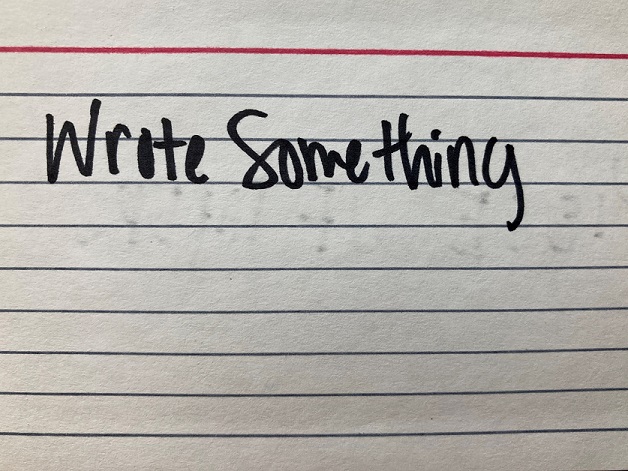 Wrote Something